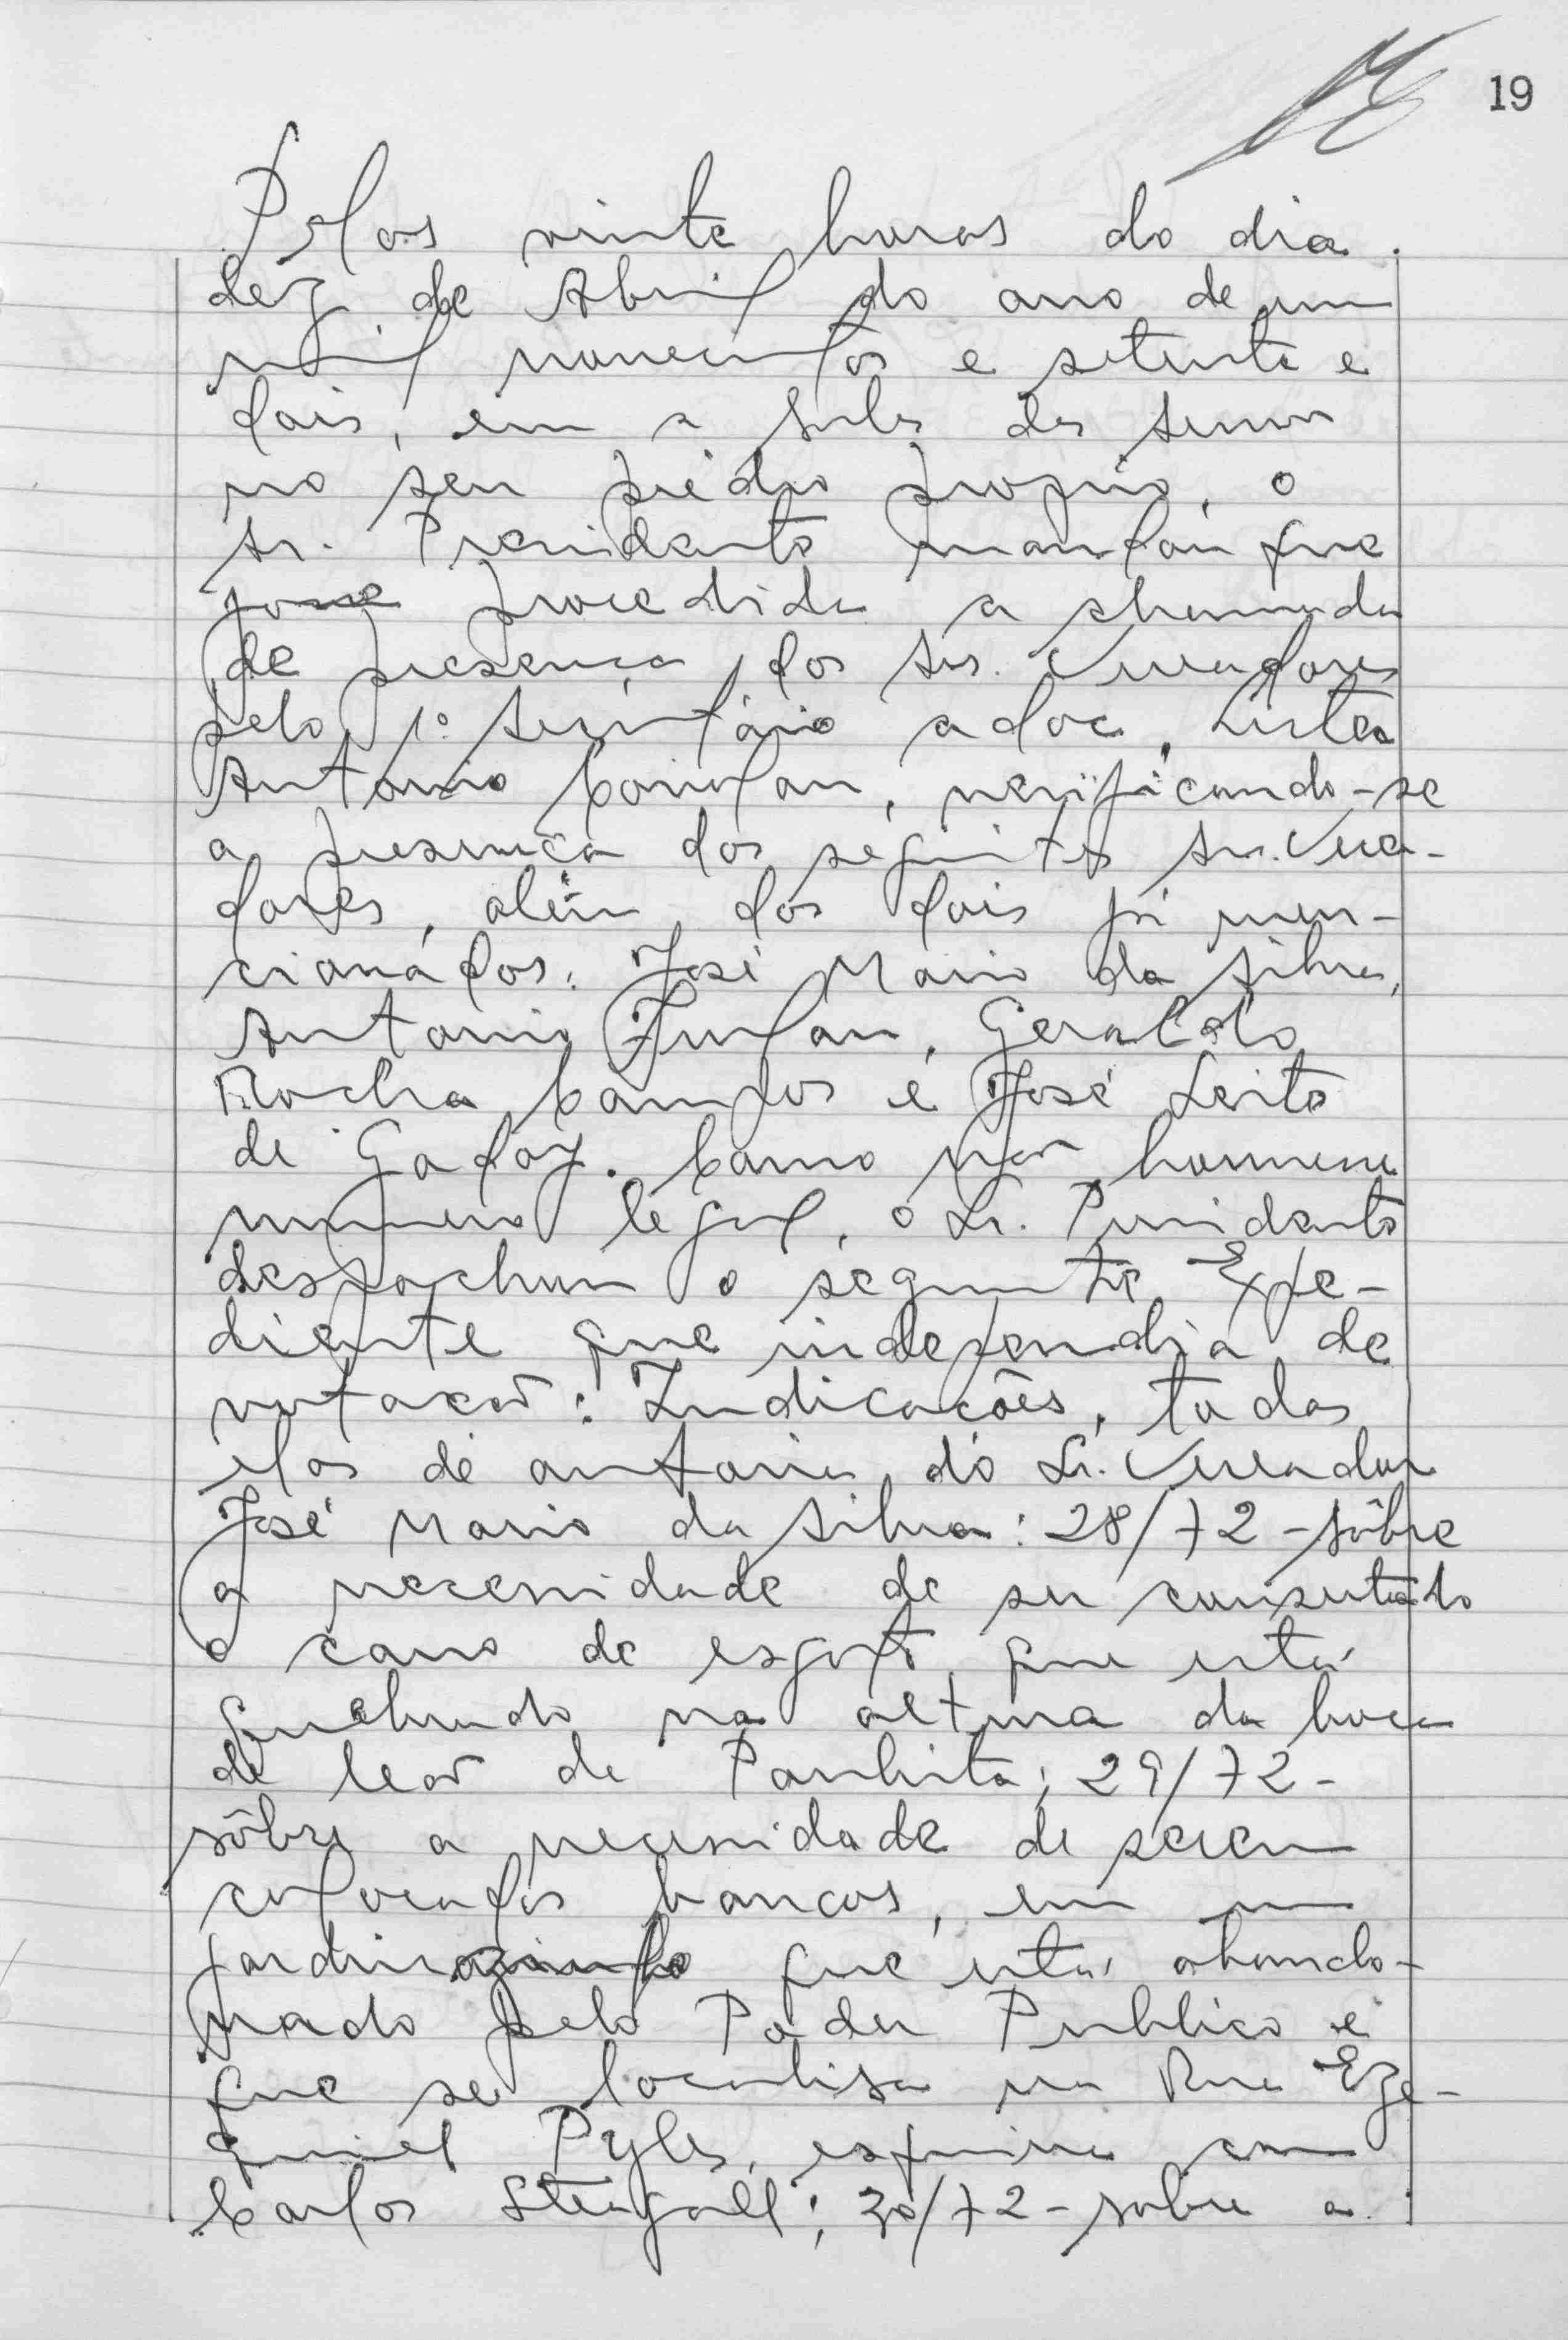 19
Pelas vinte horas do dia
dez de Abril do ano de um
mil novecentos e setenta e
dois, em a sala das sessões
no seu prédio proprio, o
Sr. Presidente mandou que
fosse procedida a chamada
de presença dos Srs. Vereadores
pelo 1º Secretário adoc,
Antonio Consolan, verificando-se
a presença dos seguintes Srs. Verea-
dores, além dos dois já men-
cionados: José Mario da Silva,
Antonio Furlan, Geraldo
Rocha Campos e José Leite
de Godoy. Como não houvesse
numero legal, o Sr. Presidente
despachou o seguinte Expe-
diente que independia de
votação: Indicações, todas
elas de autoria do Sr. Vereador
José Mario da Silva: 28/72 - sôbre
a necessidade de ser consertado
o cano de esgoto que está
quebrado na altura da boca
de leão de Paulista; 29/72 -
sôbre a necessidade de serem
colocados bancos, em um
jardinzinho que está abando-
nado pelo Poder Publico e
que se localisa na Rua Eze-
quiel Pyles, esquina com
Carlos Stengall; 30/72 - sobre a